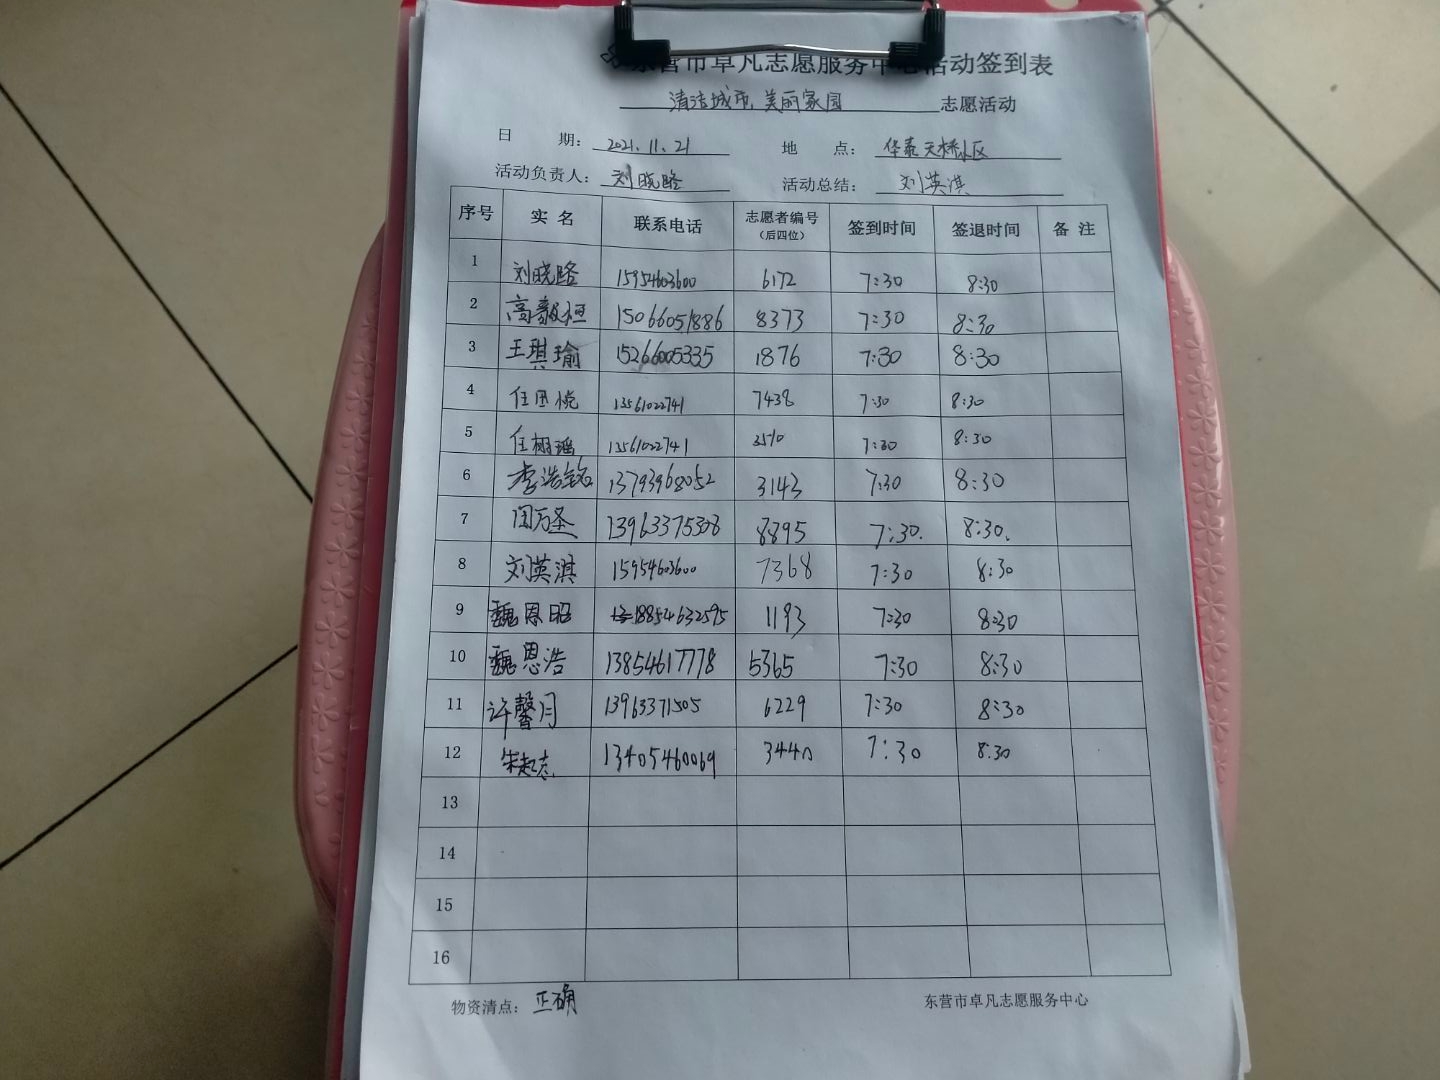 东营市卓凡志愿服务中心活动签到表
清洁城市,美丽家园 志愿活动
日 期: 2021.11.21 地 点: 华泰天桥小区
活动负责人: 刘晓路 活动总结: 刘英淇
序号 实 名 联系电话 志愿者编号(后四位) 签到时间 签退时间 备 注
1 刘晓路 15954603600 6172 7:30 8:30
2 高毅恒 15066051886 8373 7:30 8:30
3 王琪瑜 15266005335 1876 7:30 8:30
4 任思悦 13561022741 7438 7:30 8:30
5 任栩瑶 13561022741 3510 7:30 8:30
6 李浩铭 13793968052 3143 7:30 8:30
7 闫万圣 13963375308 8895 7:30. 8:30.
8 刘英淇 15954603600 7368 7:30 8:30
9 魏恩昭 18854632595 1193 7:30 8:30
10 魏恩浩 13854617778 5365 7:30 8:30
11 许馨月 13963371505 6229 7:30 8:30
12 朱起志 13405460069 3440 7:30 8:30
13
14
15
16
物资清点: 正确 东营市卓凡志愿服务中心